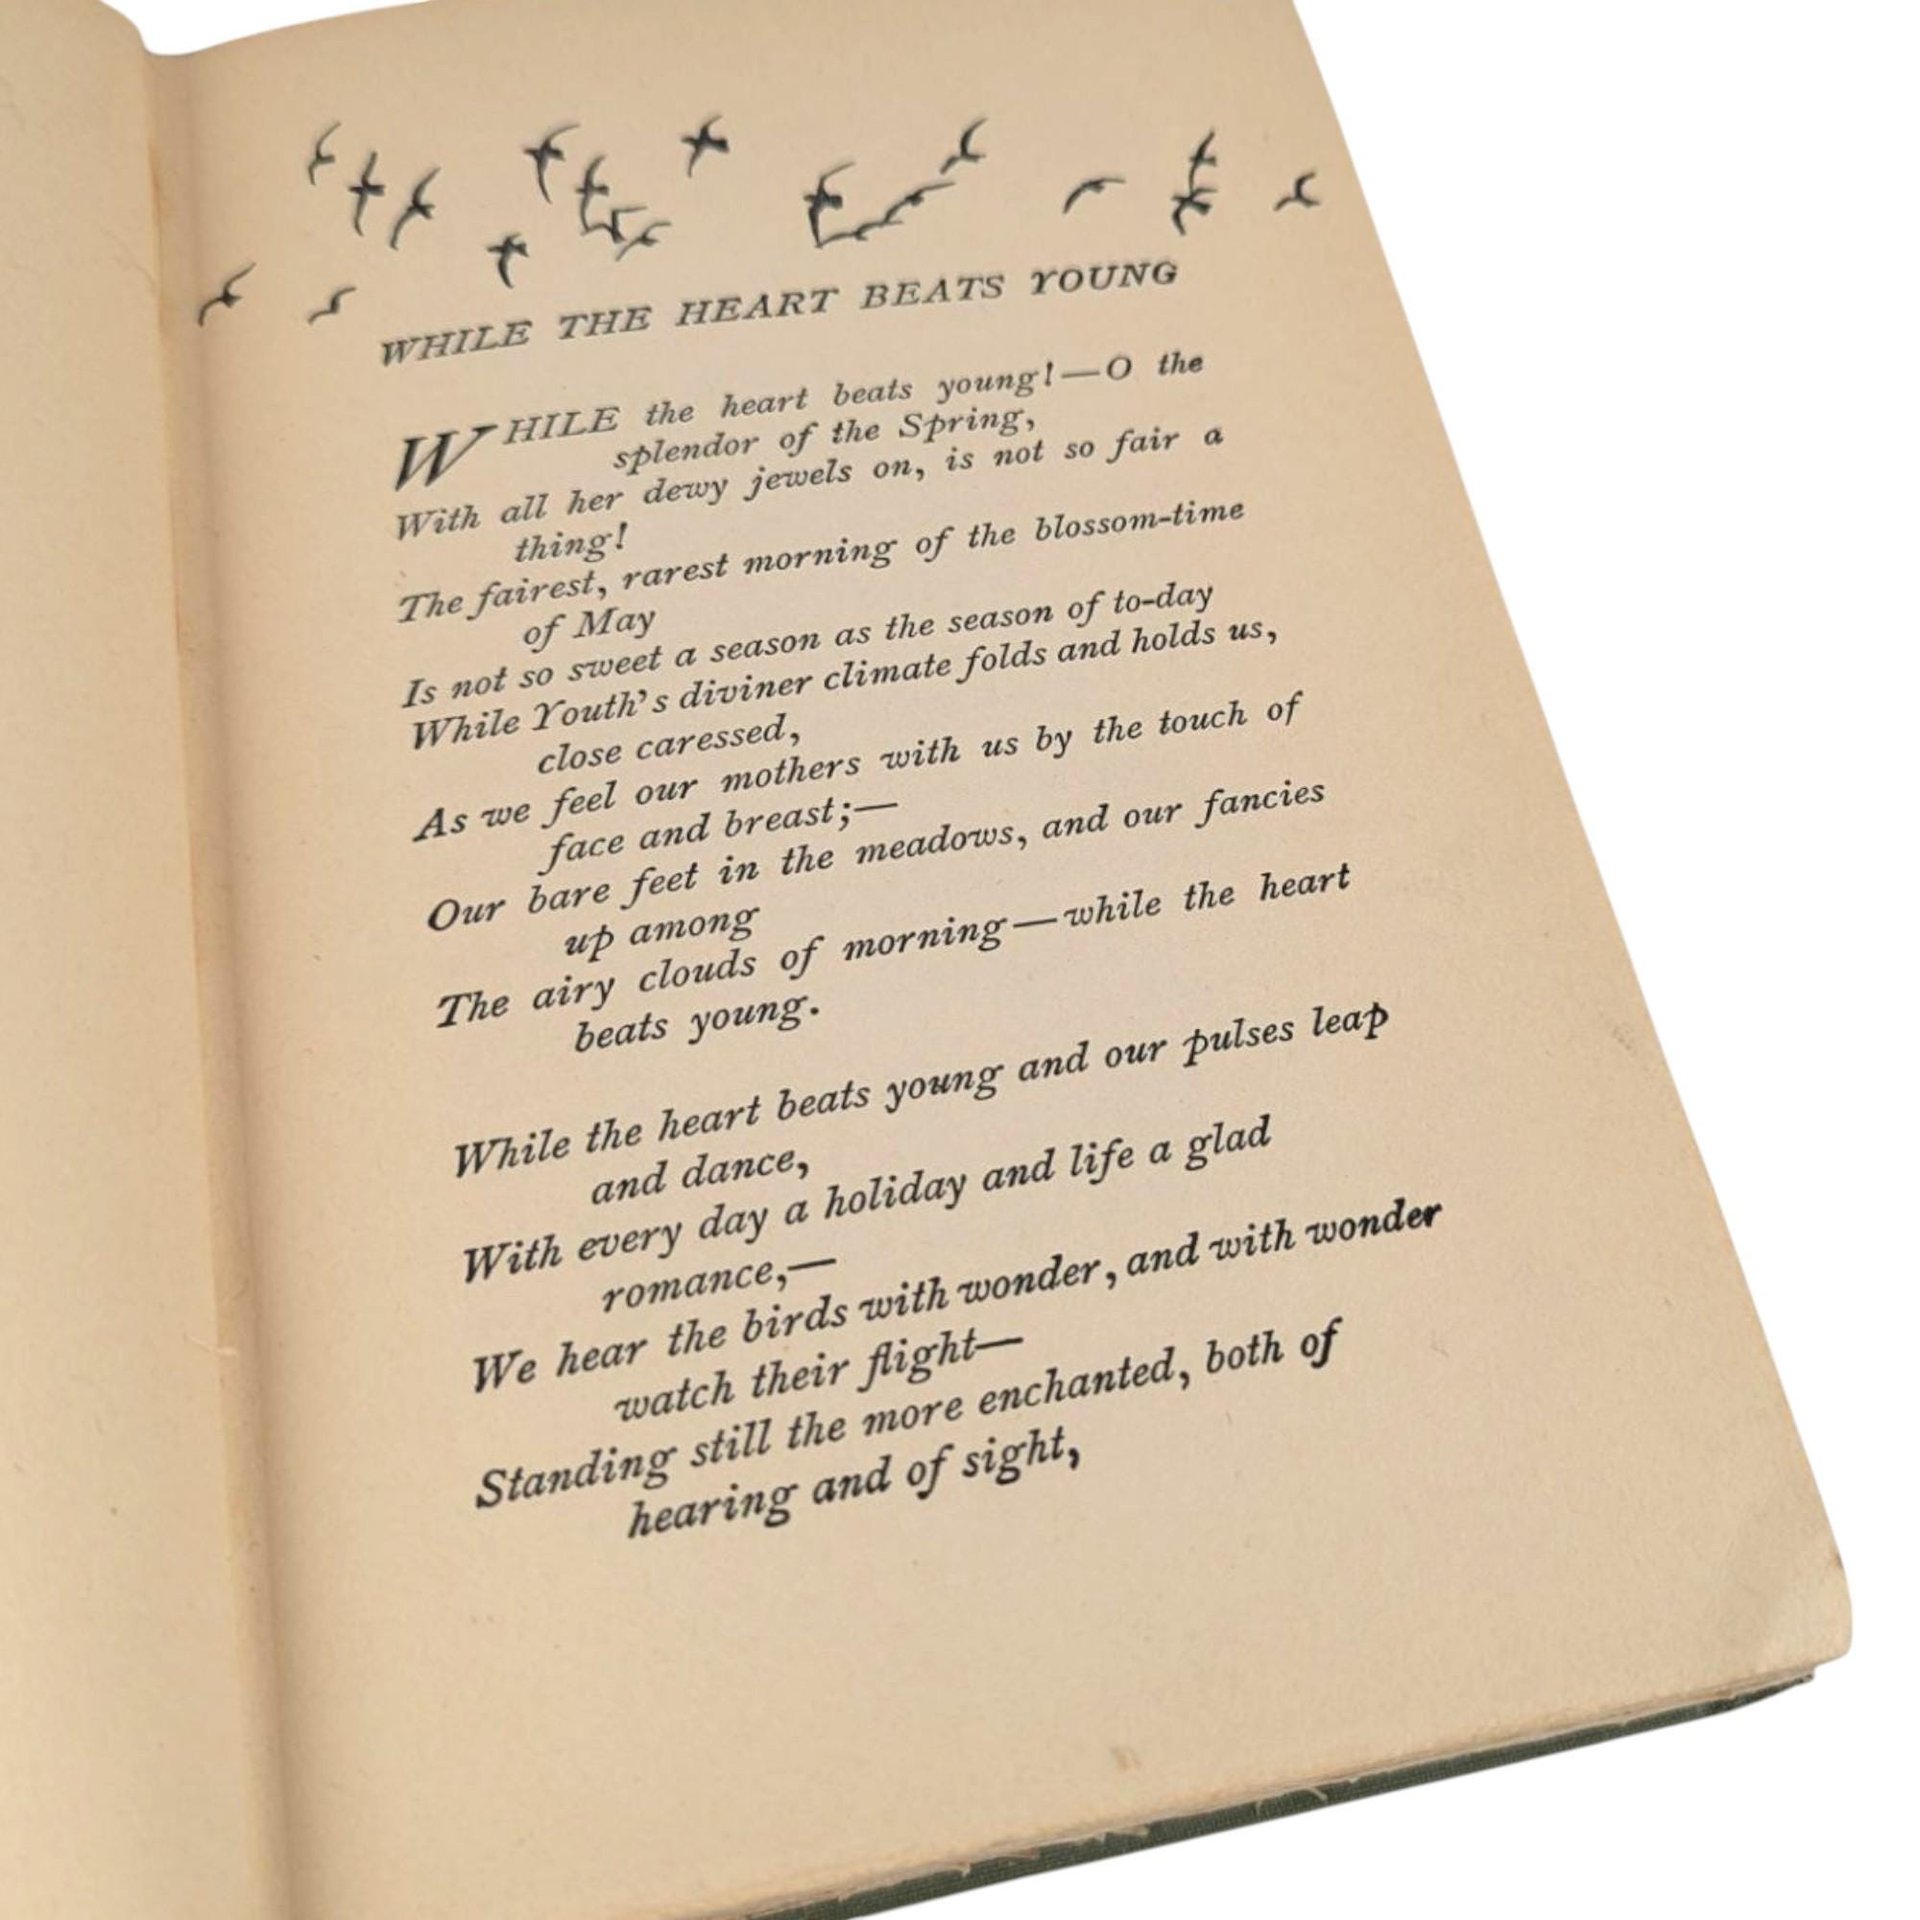 WHILE THE HEART BEATS YOUNG
WHILE the heart beats young!—O the
splendor of the Spring,
With all her dewy jewels on, is not so fair a
thing!
The fairest, rarest morning of the blossom-time
of May
Is not so sweet a season as the season of to-day
While Youth's diviner climate folds and holds us,
close caressed,
As we feel our mothers with us by the touch of
face and breast;—
Our bare feet in the meadows, and our fancies
up among
The airy clouds of morning—while the heart
beats young.
While the heart beats young and our pulses leap
and dance,
With every day a holiday and life a glad
romance,—
We hear the birds with wonder, and with wonder
watch their flight—
Standing still the more enchanted, both of
hearing and of sight,